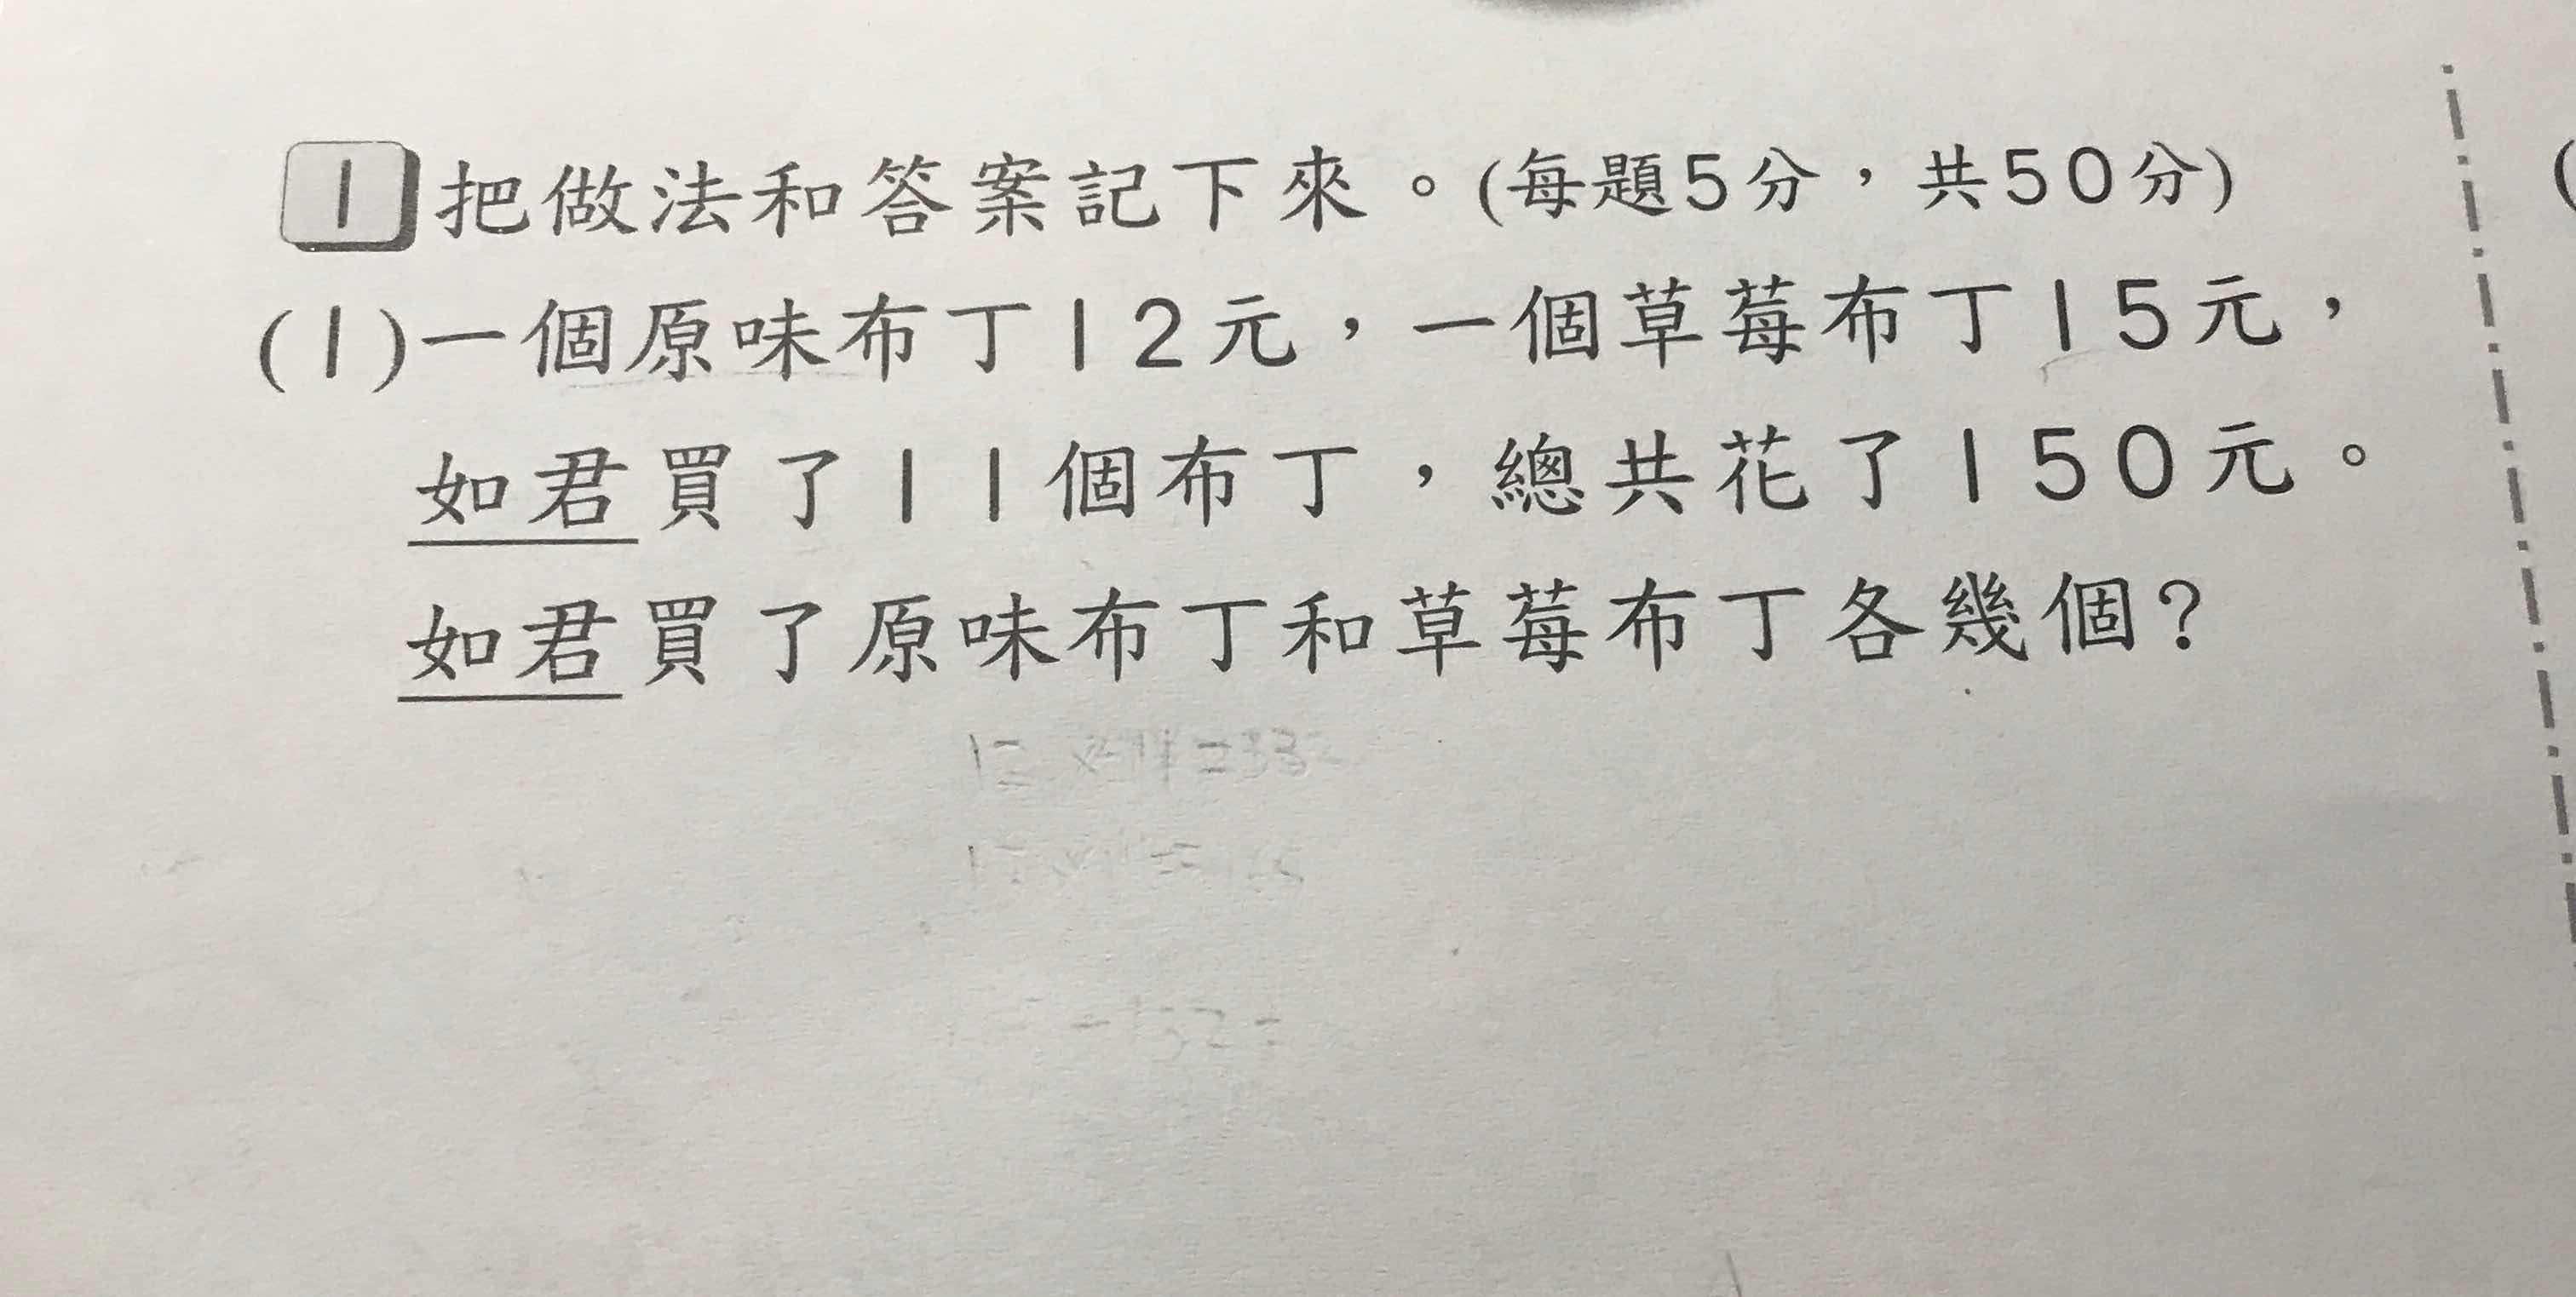 1 把做法和答案記下來。(每題5分，共50分)
(1)一個原味布丁12元，一個草莓布丁15元，
如君買了11個布丁，總共花了150元。
如君買了原味布丁和草莓布丁各幾個？